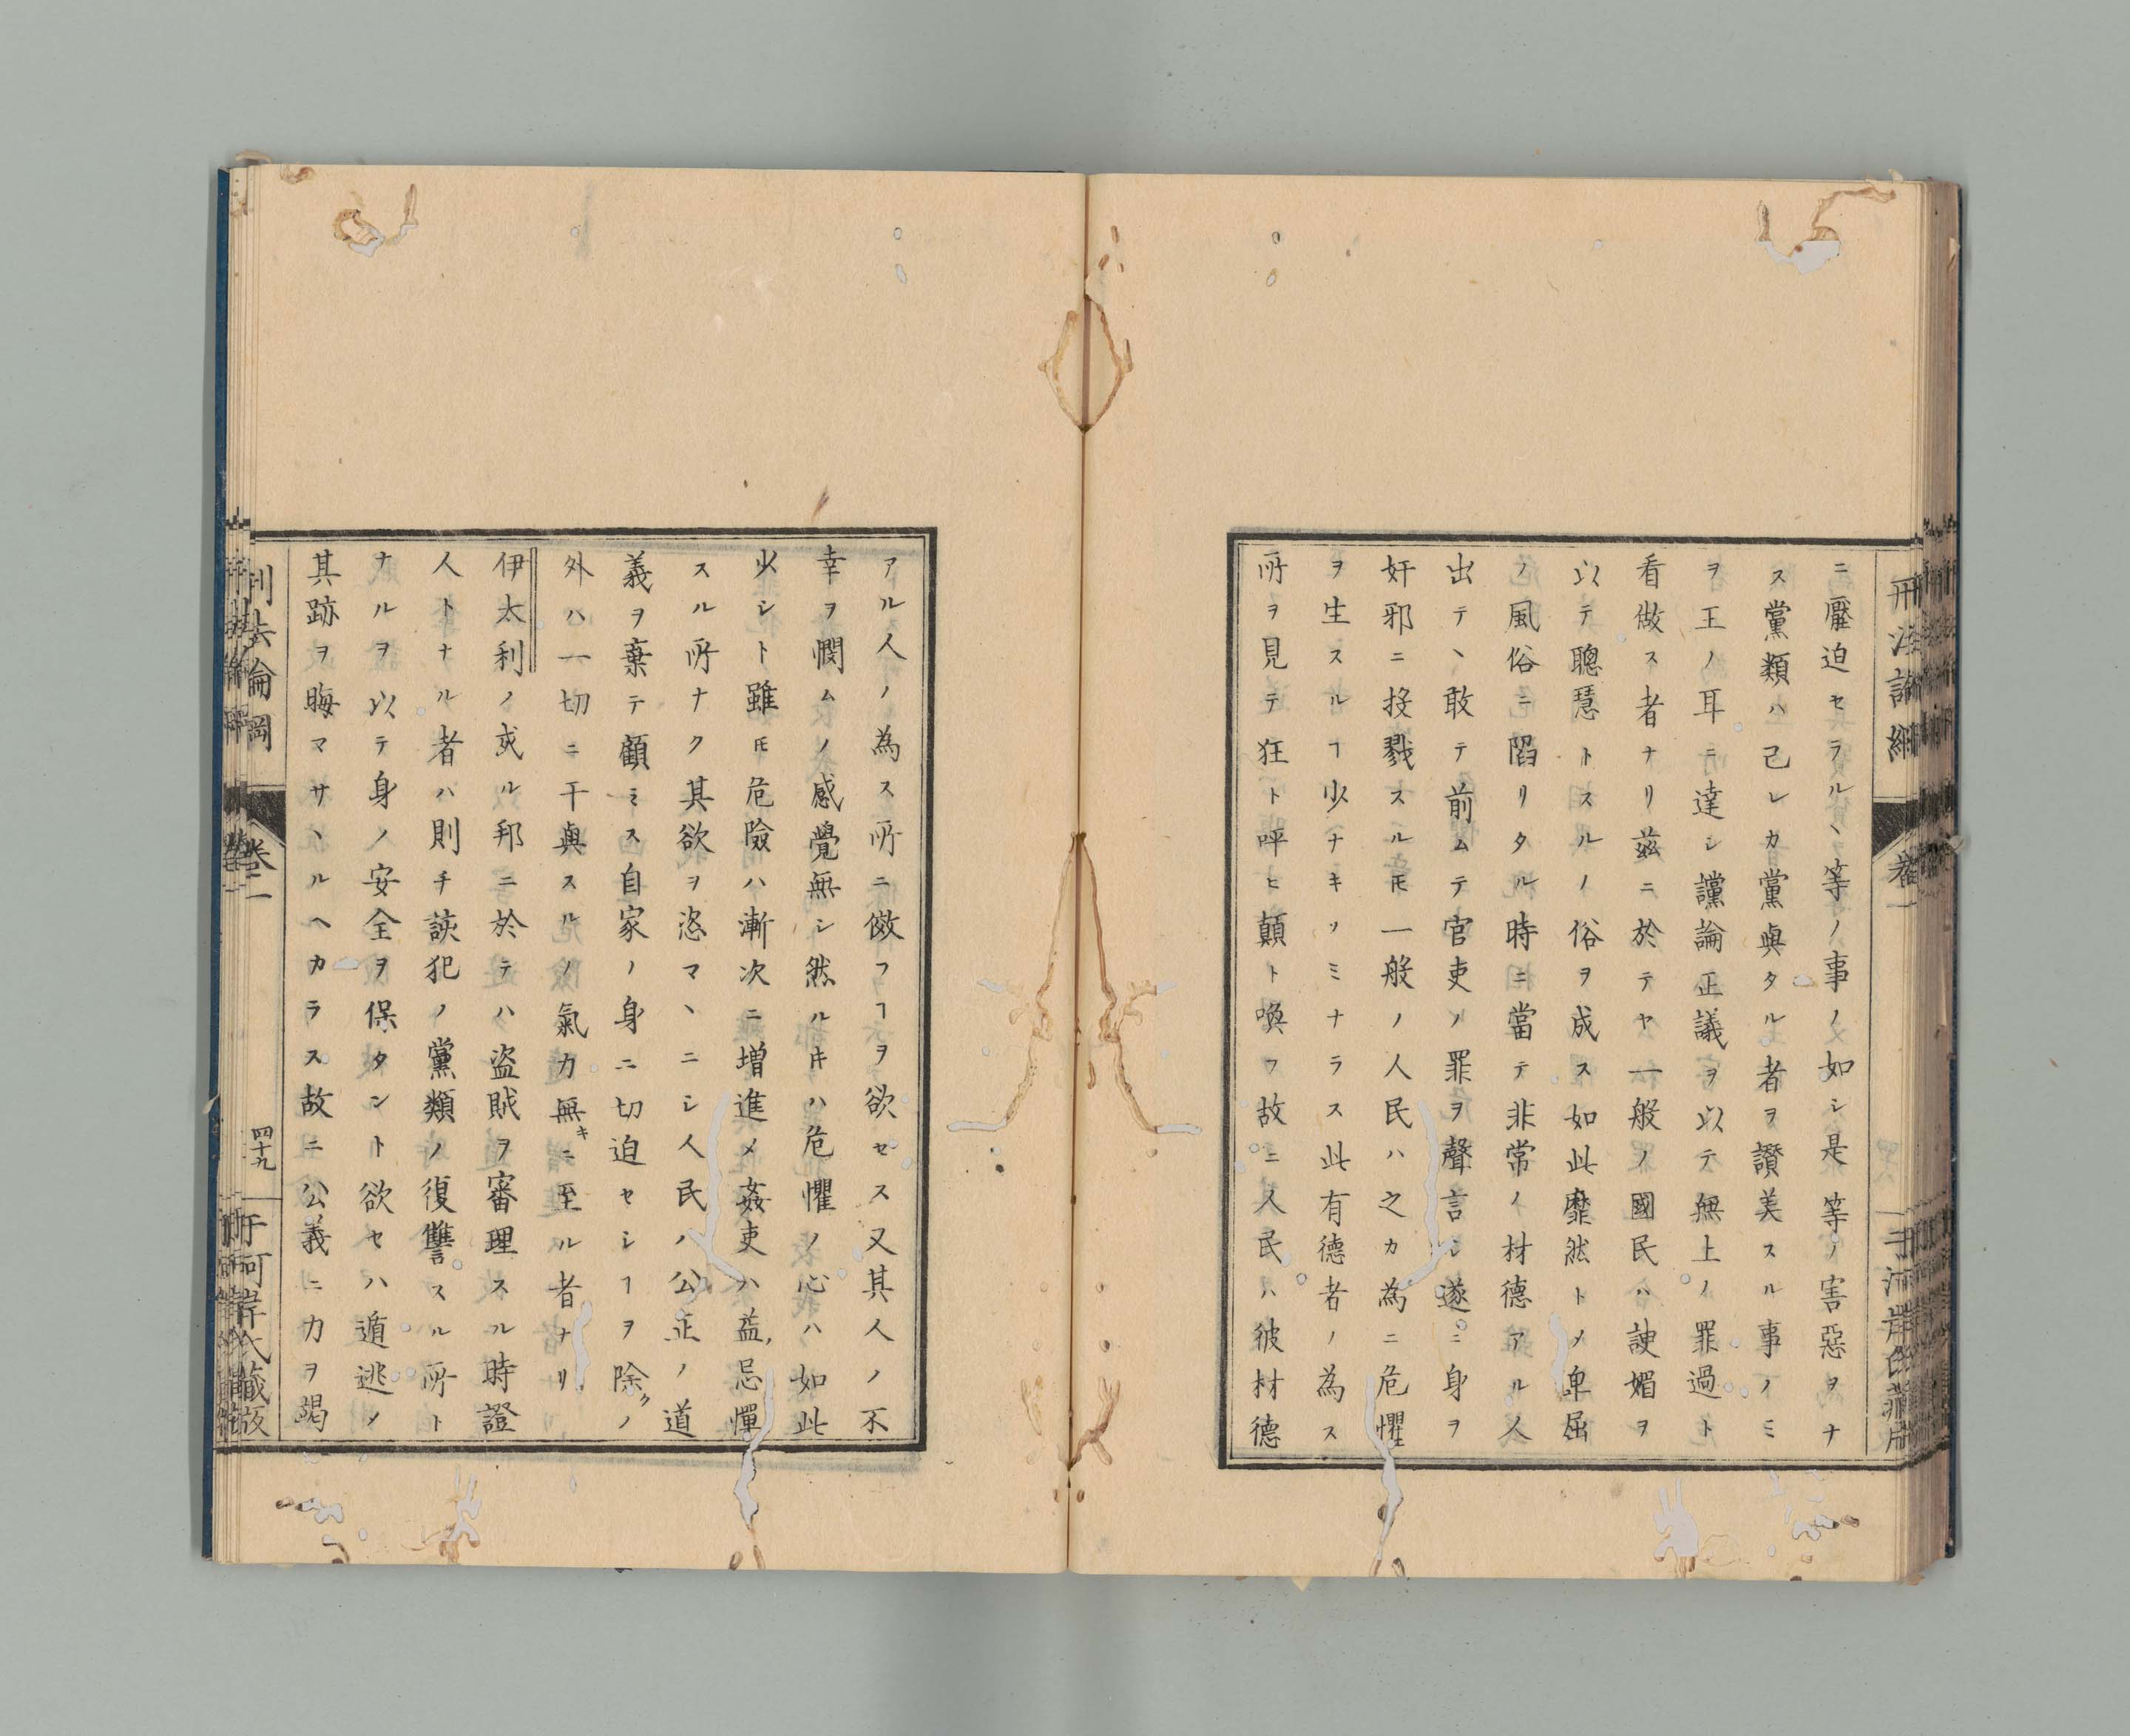 刑法論綱
卷二
于河岸氏藏版
ニ壓迫セラルヽ等ノ事ノ如シ是等ノ害惡ヲナ
ス黨類ハ己レカ黨與タル者ヲ讚美スル事ノミ
ヲ王ノ耳ニ達シ讜論正議ヲ以テ無上ノ罪過ト
看做ス者ナリ茲ニ於テヤ一般ノ國民ハ諛媚ヲ
以テ聰慧トスルノ俗ヲ成ス如此靡然トメ卑屈
ノ風俗ニ陷リタル時ニ當テ非常ノ材德アル人
出テヽ敢テ前ムテ官吏ノ罪ヲ聲言シ遂ニ身ヲ
奸邪ニ投戮スルモ一般ノ人民ハ之カ為ニ危懼
ヲ生スルヿ少ナキノミナラス此有德者ノ為ス
所ヲ見テ狂ト呼ヒ顛ト喚フ故ニ人民ハ彼材德
アル人ノ為ス所ニ倣フヿヲ欲セス又其人ノ不
幸ヲ憫ムノ感覺無シ然ル𪜈ハ危懼ノ心ハ如此
少シト雖𪜈危險ハ漸次ニ増進メ姦吏ハ益忌憚
スル所ナク其欲ヲ恣マヽニシ人民ハ公正ノ道
義ヲ棄テ顧ミス自家ノ身ニ切迫セシヿヲ除クノ
外ハ一切ニ干與スルノ氣力無キニ至ル者ナリ
伊太利ノ或ル邦ニ於テハ盜賊ヲ審理スル時證
人トナル者ハ則チ該犯ノ黨類ノ復讐スル所ト
ナルヲ以テ身ノ安全ヲ保タント欲セハ遁逃メ
其跡ヲ晦マサヽルヘカラス故ニ公義ニ力ヲ竭
刑法論綱
卷二
四十九
于河岸氏藏版